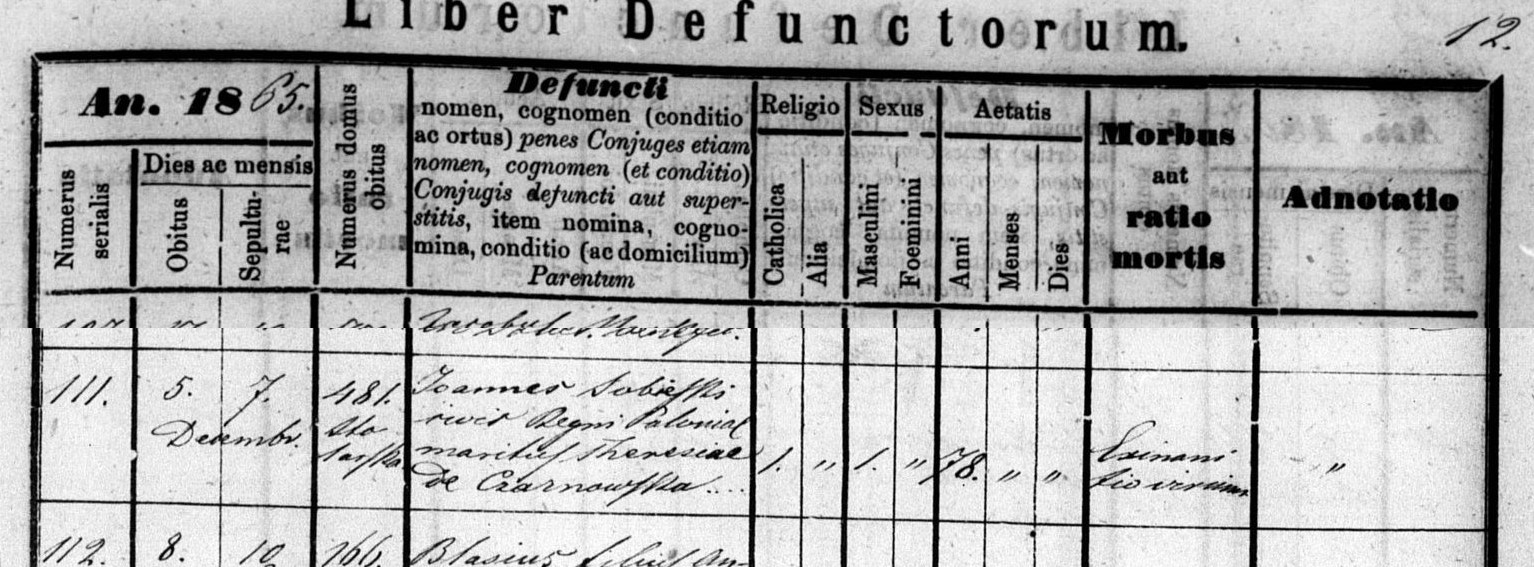 Liber Defunctorum.
12.
An. 1865.
Numerus serialis
Dies ac mensis
Obitus
Sepultu-
rae
Numerus domus
obitus
Defuncti
nomen, cognomen (conditio
ac ortus) penes Conjuges etiam
nomen, cognomen (et conditio)
Conjugis defuncti aut super-
stitis, item nomina, cogno-
mina, conditio (ac domicilium)
Parentum
Religio
Catholica
Alia
Sexus
Masculini
Foeminini
Aetatis
Anni
Menses
Dies
Morbus
aut
ratio
mortis
Adnotatio
111. 5. 7. 481. Joannes Sobieski
civis Regni Poloniae
Decembr.
maritus Theresiae
1. " 1. " 78. " " Exinani
tio virium "
de Czarnowska
112. 8. 10 166. Blasius filius An-